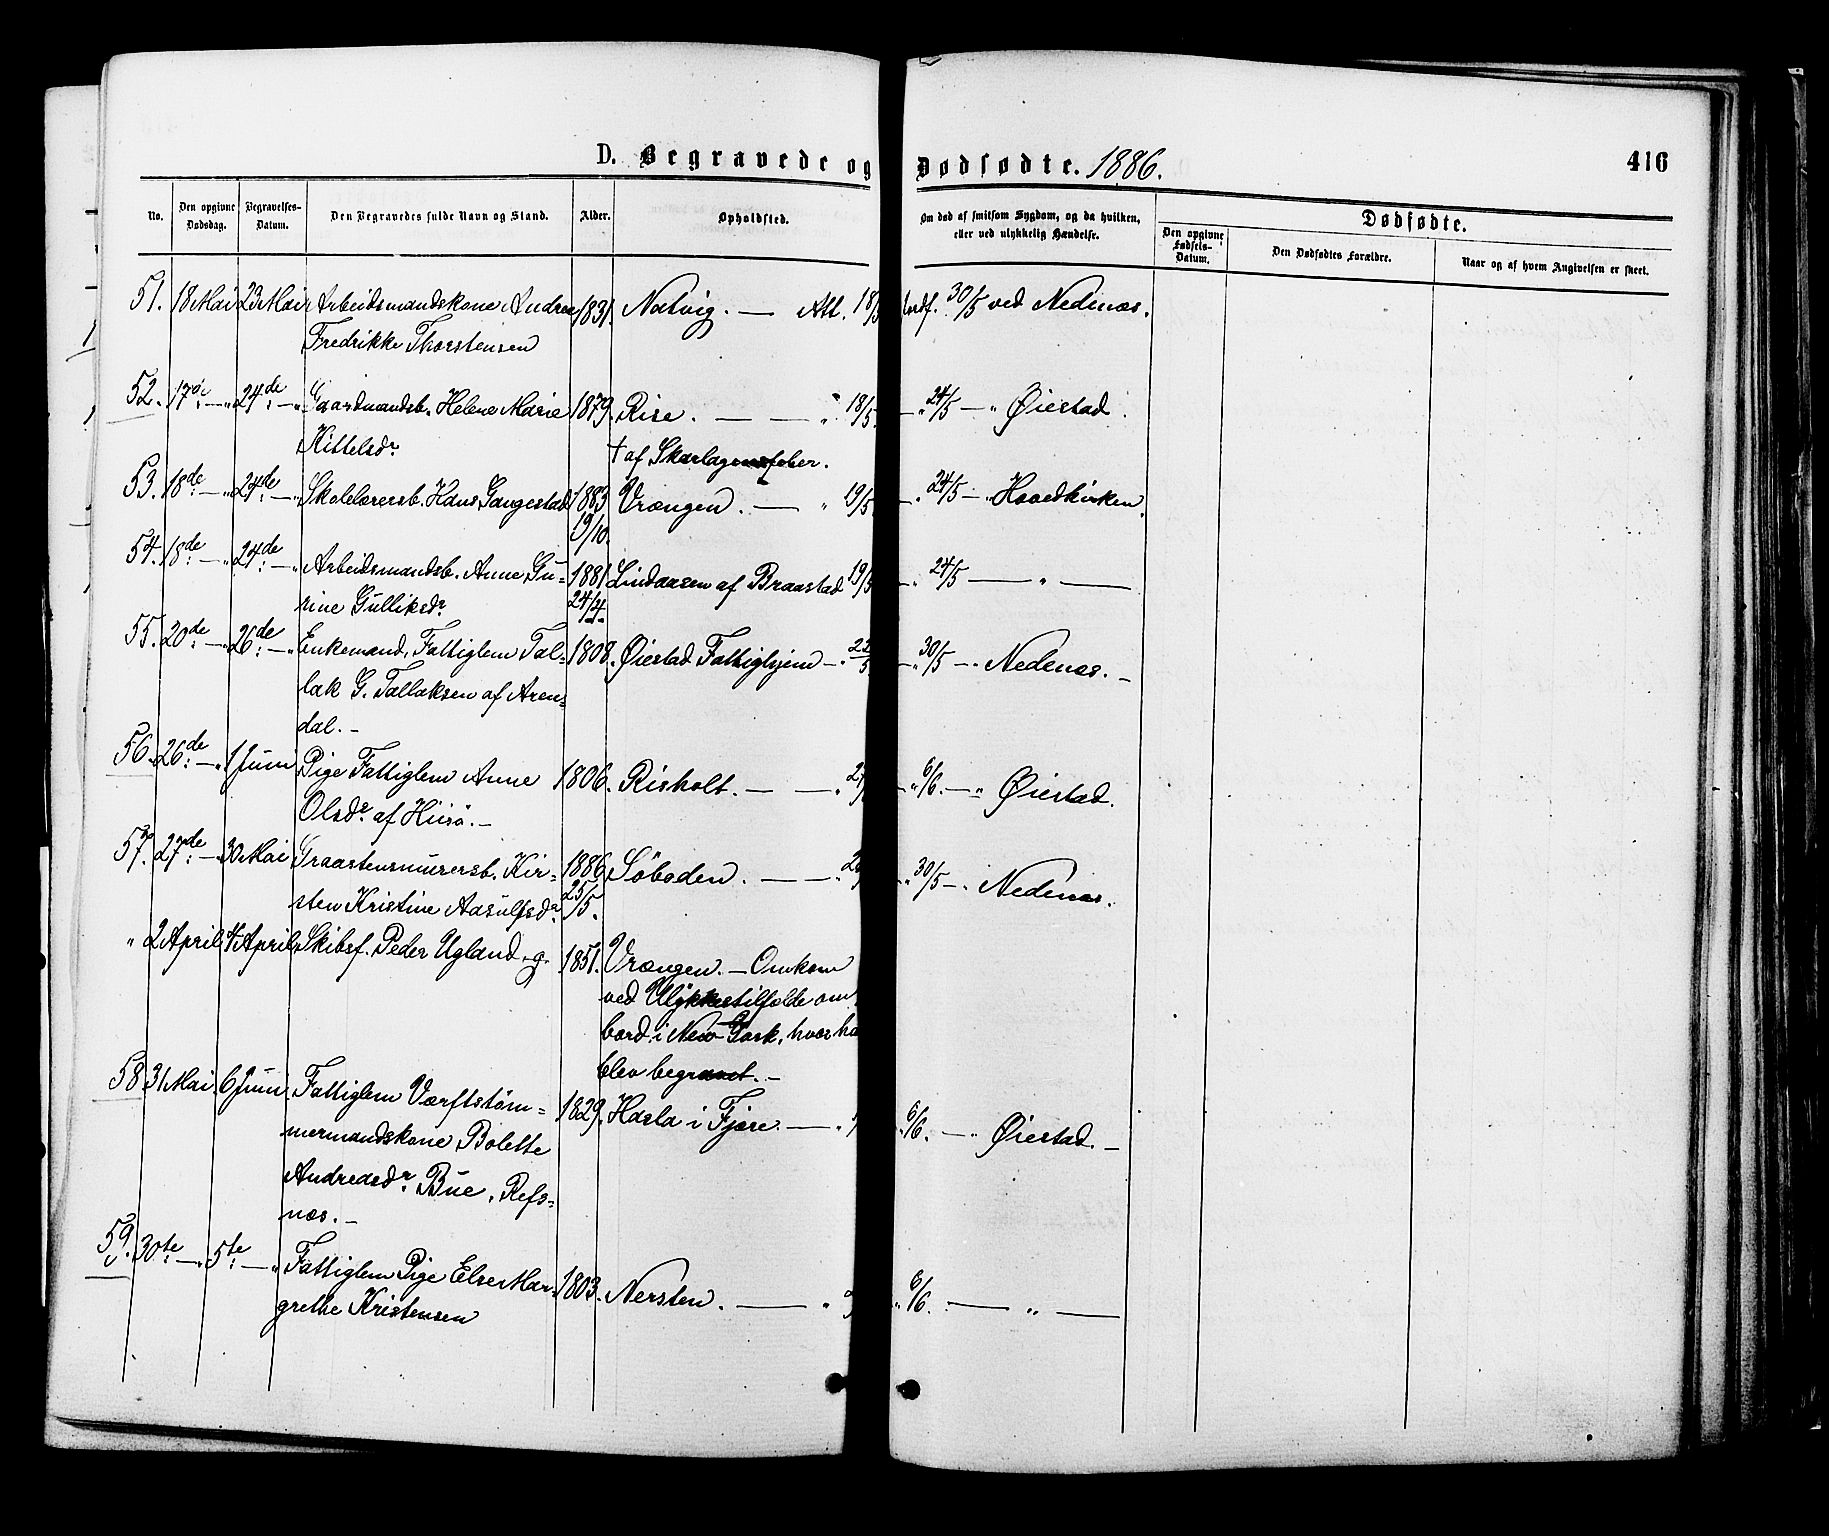 D. Begravede og Dødfødte. 1886.
416
No.
Den opgivne Dødsdag.
Begravelses-Datum.
Den Begravedes fulde Navn og Stand.
Alder.
Opholdssted.
Om død af smitsom Sygdom, og da hvilken,
eller ved ulykkelig Hændelse.
Dødfødte.
Den opgivne Fødsels-Datum.
Den Dødfødtes Forældre.
Naar og af hvem Angivelsen er skeet.
51. 18 Mai 23 Mai Arbeidsmandskone Andrea 1831. Natvig. — Att. 18/5 Jordf. 30/5 ved Nedenæs.
Fredrikke Thorstensen
52. 17de — " 24de — " Gaardmandsb. Helene Marie 1879. Rise. — — " 18/5. — " 24/5 — " Øiestad.
Kittelsdr. † af Skarlagensfeber.
53. 18de — " 24de — " Skolelærersb. Hans Gangestad 1883 Vrængen. — " 19/5. — " 24/5 — " Hovedkirken.
19/10.
54. 18de — " 24de — " Arbeidsmandsb. Anne Gu- 1881 Lindaasen af Braastad 19/5 — " 24/5 — " —
rine Gulliksdr. 24/4.
55. 20de — " 26de — " Enkemand, Fattiglem Tal- 1808. Øiestad Fattighjem — " 22/5 — " 30/5 — " Nedenæs. —
lak G. Tallaksen af Aren-
dal. —
56. 26de — " 1 Juni Pige Fattiglem Anne 1806. Risholt. — — " — " 6/6. — " Øiestad.
Olsdr. af Hiisø. —
57. 27de — " 30 Mai Graastensmurersb. Kir- 1886 Søboden. — — " — " 30/5 — " Nedenæs.
sten Kristine Aasulfsdr. 25/5.
" 2 April 4 April Skibsf. Peder Ugland, g. 1851. Vrængen. — Omkom
ved Ulykkestilfælde om
bord i New York, hvor ha
blev begravet. —
58. 31 Mai 6 Juni Fattiglem Værftstøm- 1829. Hasla i Fjære. — " — " 6/6. — " Øiestad. —
mermandskone Bolette
Andreasdr. Bue, Refs-
næs. —
59. 30te — " 5te — " Fattiglem Pige Else Mar- 1803. Nersten. — " — " 6/6. — " —
grethe Kristensen